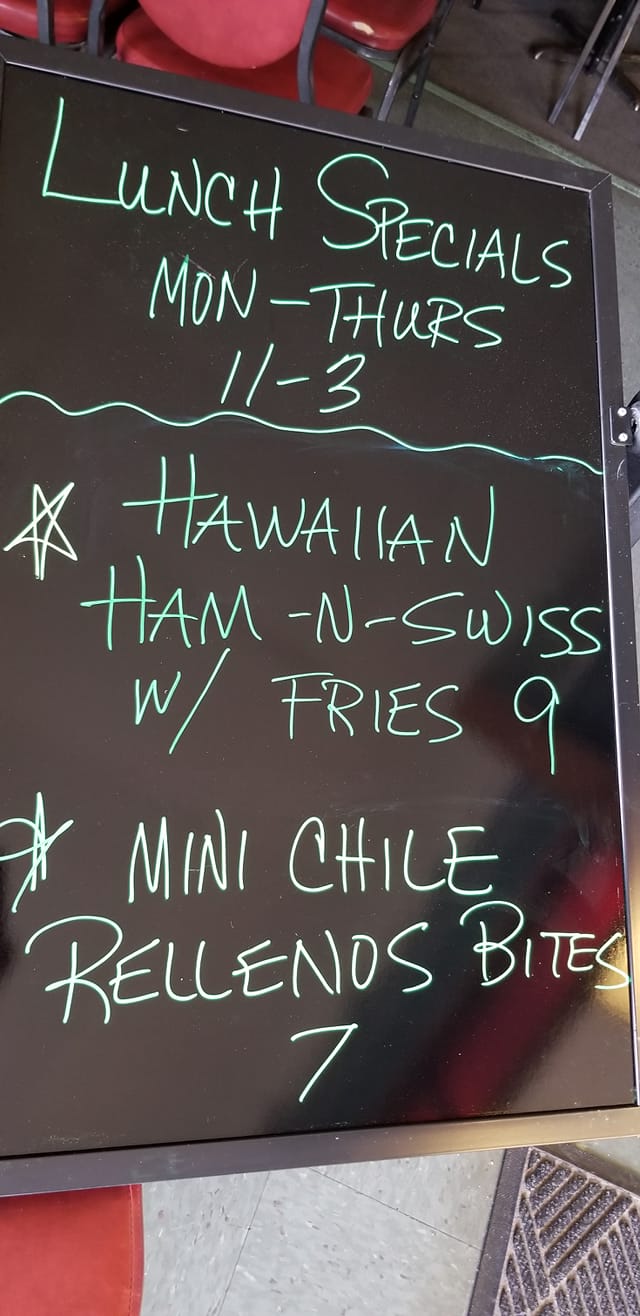 LUNCH SPECIALS
MON-THURS
11-3
HAWAIIAN
HAM-N-SWISS
W/ FRIES 9
MINI CHILE
RELLENOS BITES
7